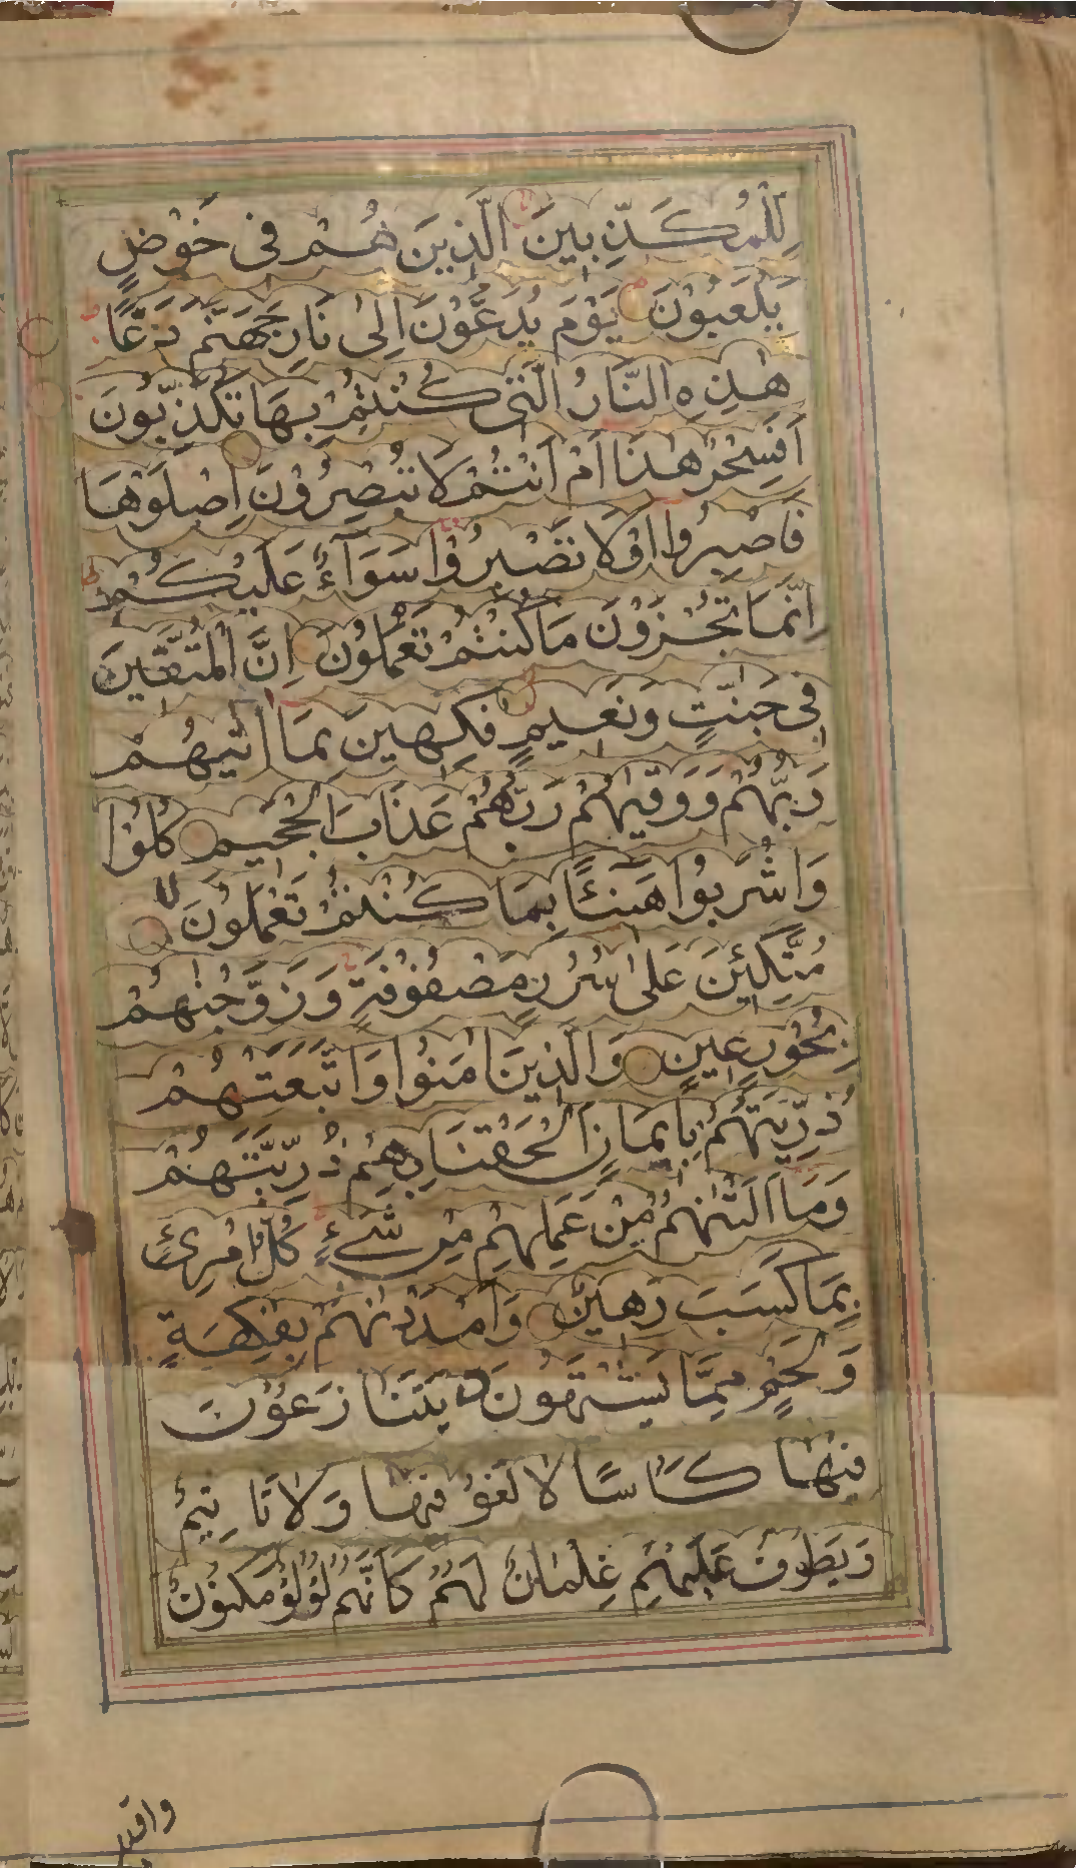 لِلْمُكَذِّبِينَ الَّذِينَ هُمْ فِى خَوْضٍ
يَلْعَبُوْنَ يَوْمَ يُدَعُّوْنَ اِلىٰ نَارِ جَهَنَّمَ دَعًّا
هٰذِهِ النَّارُ الَّتِى كُنْتُمْ بِهَا تُكَذِّبُونَ
اَفَسِحْرٌ هٰذَا اَمْ اَنْتُمْ لَا تُبْصِرُوْنَ اِصْلَوْهَا
فَاصْبِرُوا اَوْ لَا تَصْبِرُوْا سَوَآءٌ عَلَيْكُمْ
اِنَّمَا تُجْزَوْنَ مَا كُنْتُمْ تَعْمَلُوْنَ اِنَّ الْمُتَّقِينَ
فِى جَنّٰتٍ وَنَعِيمٍ فٰكِهِينَ بِمَا اٰتٰيهُمْ
رَبُّهُمْ وَوَقٰيهُمْ رَبُّهُمْ عَذَابَ الْجَحِيمِ كُلُوْا
وَاشْرَبُوا هَنِٓيئًا بِمَا كُنْتُمْ تَعْمَلُوْنَ لا
مُتَّكِئِينَ عَلىٰ سُرُرٍ مَصْفُوْفَةٍ وَزَوَّجْنٰهُمْ
بِحُوْرٍ عِينٍ وَالَّذِينَ اٰمَنُوْا وَاتَّبَعَتْهُمْ
ذُرِّيَّتُهُمْ بِاِيمَانٍ اَلْحَقْنَا بِهِمْ ذُرِّيَّتَهُمْ
وَمَا اَلَتْنٰهُمْ مِنْ عَمَلِهِمْ مِنْ شَىْءٍ كُلُّ امْرِئٍ
بِمَا كَسَبَ رَهِينٌ وَاَمْدَدْنٰهُمْ بِفٰكِهَةٍ
وَلَحْمٍ مِمَّا يَشْتَهُونَ يَتَنَازَعُوْنَ
فِيْهَا كَاْسًا لَا لَغْوٌ فِيْهَا وَلَا تَاْثِيْمٌ
وَيَطُوْفُ عَلَيْهِمْ غِلْمَانٌ لَهُمْ كَاَنَّهُمْ لُؤْلُؤٌ مَكْنُوْنٌ
واقبل